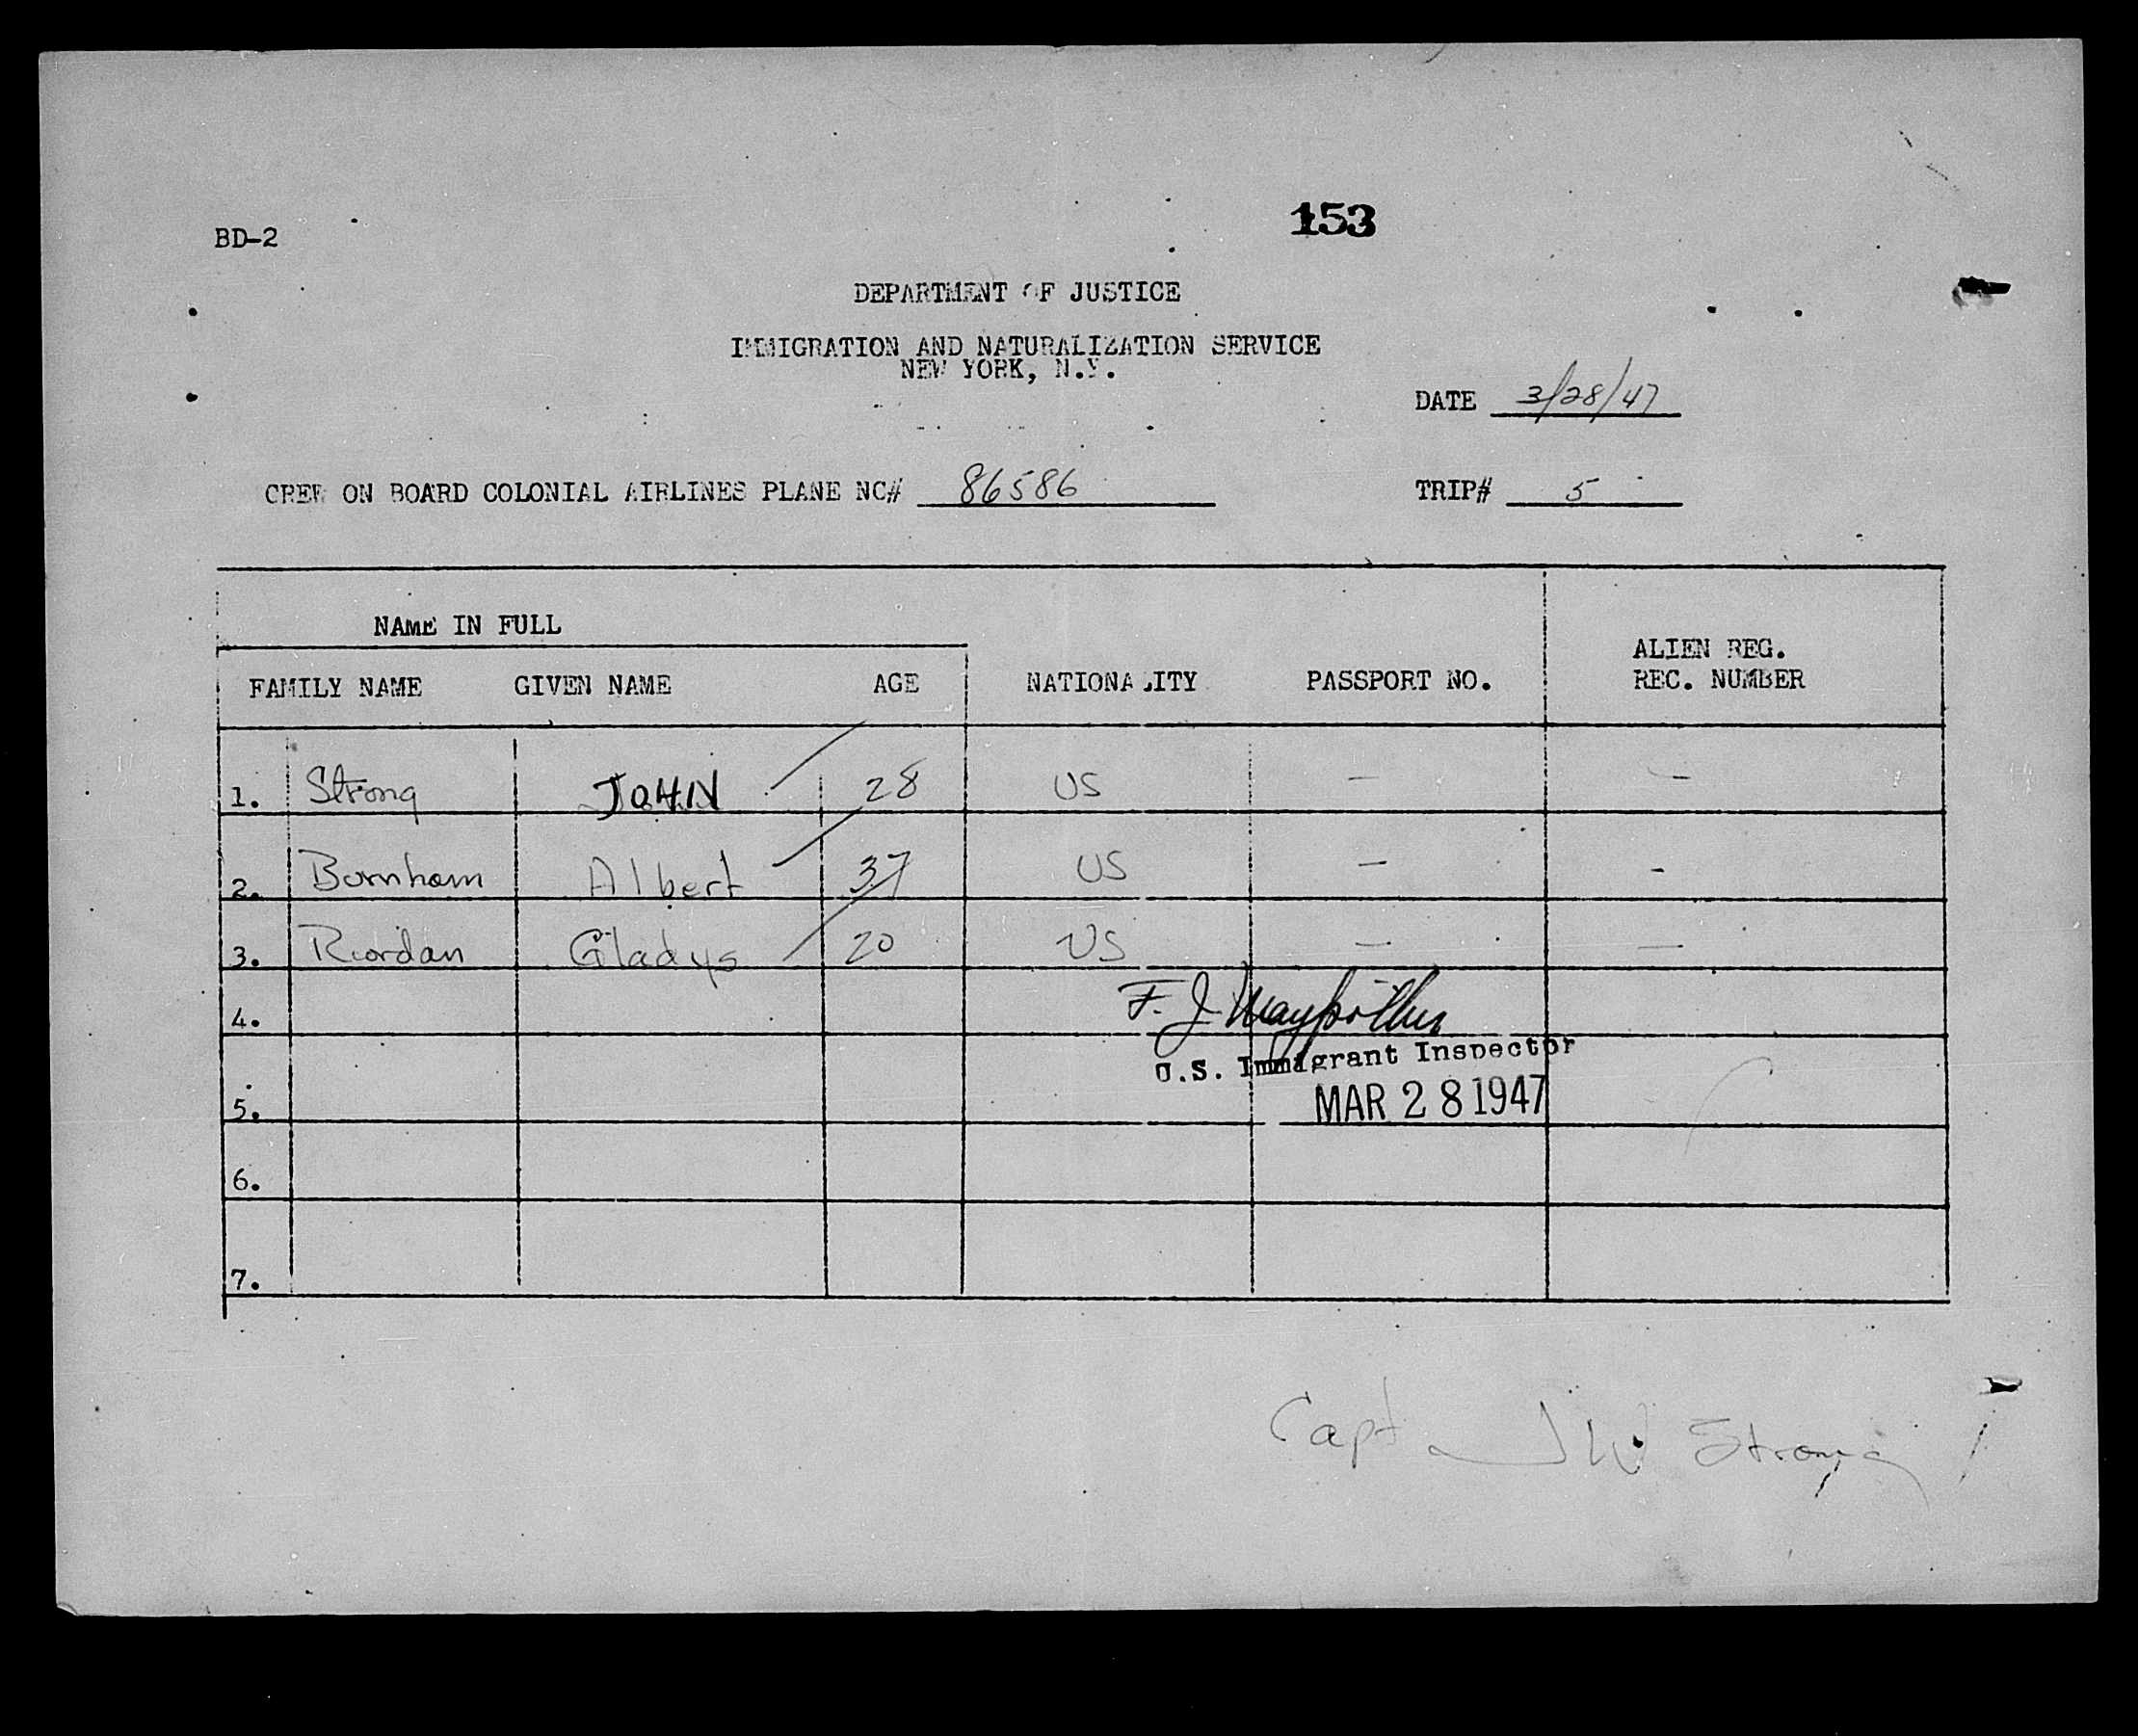 153
BD-2
DEPARTMENT OF JUSTICE
IMMIGRATION AND NATURALIZATION SERVICE
NEW YORK, N.Y.
DATE 3/28/47
CREW ON BOARD COLONIAL AIRLINES PLANE NC# 86586 TRIP# 5
NAME IN FULL
ALIEN REG.
FAMILY NAME GIVEN NAME AGE NATIONALITY PASSPORT NO. REC. NUMBER
1. Strong JOHN 28 US — —
2. Burnham Albert 37 US — -
3. Riordan Gladys 20 US — —
4. F. J.
U.S. Immigrant Inspector
5. MAR 28 1947
6.
7.
Capt J W Strong